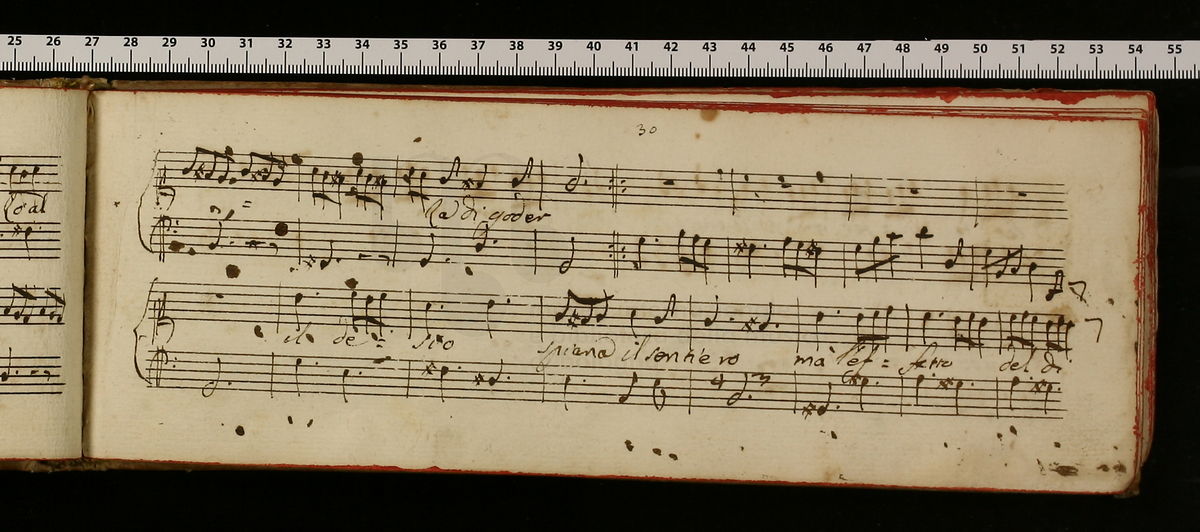 25 26 27 28 29 30 31 32 33 34 35 36 37 38 39 40 41 42 43 44 45 46 47 48 49 50 51 52 53 54 55
30
ra di goder
il de = sio spiana il sentiero ma l'ef = fetto del di